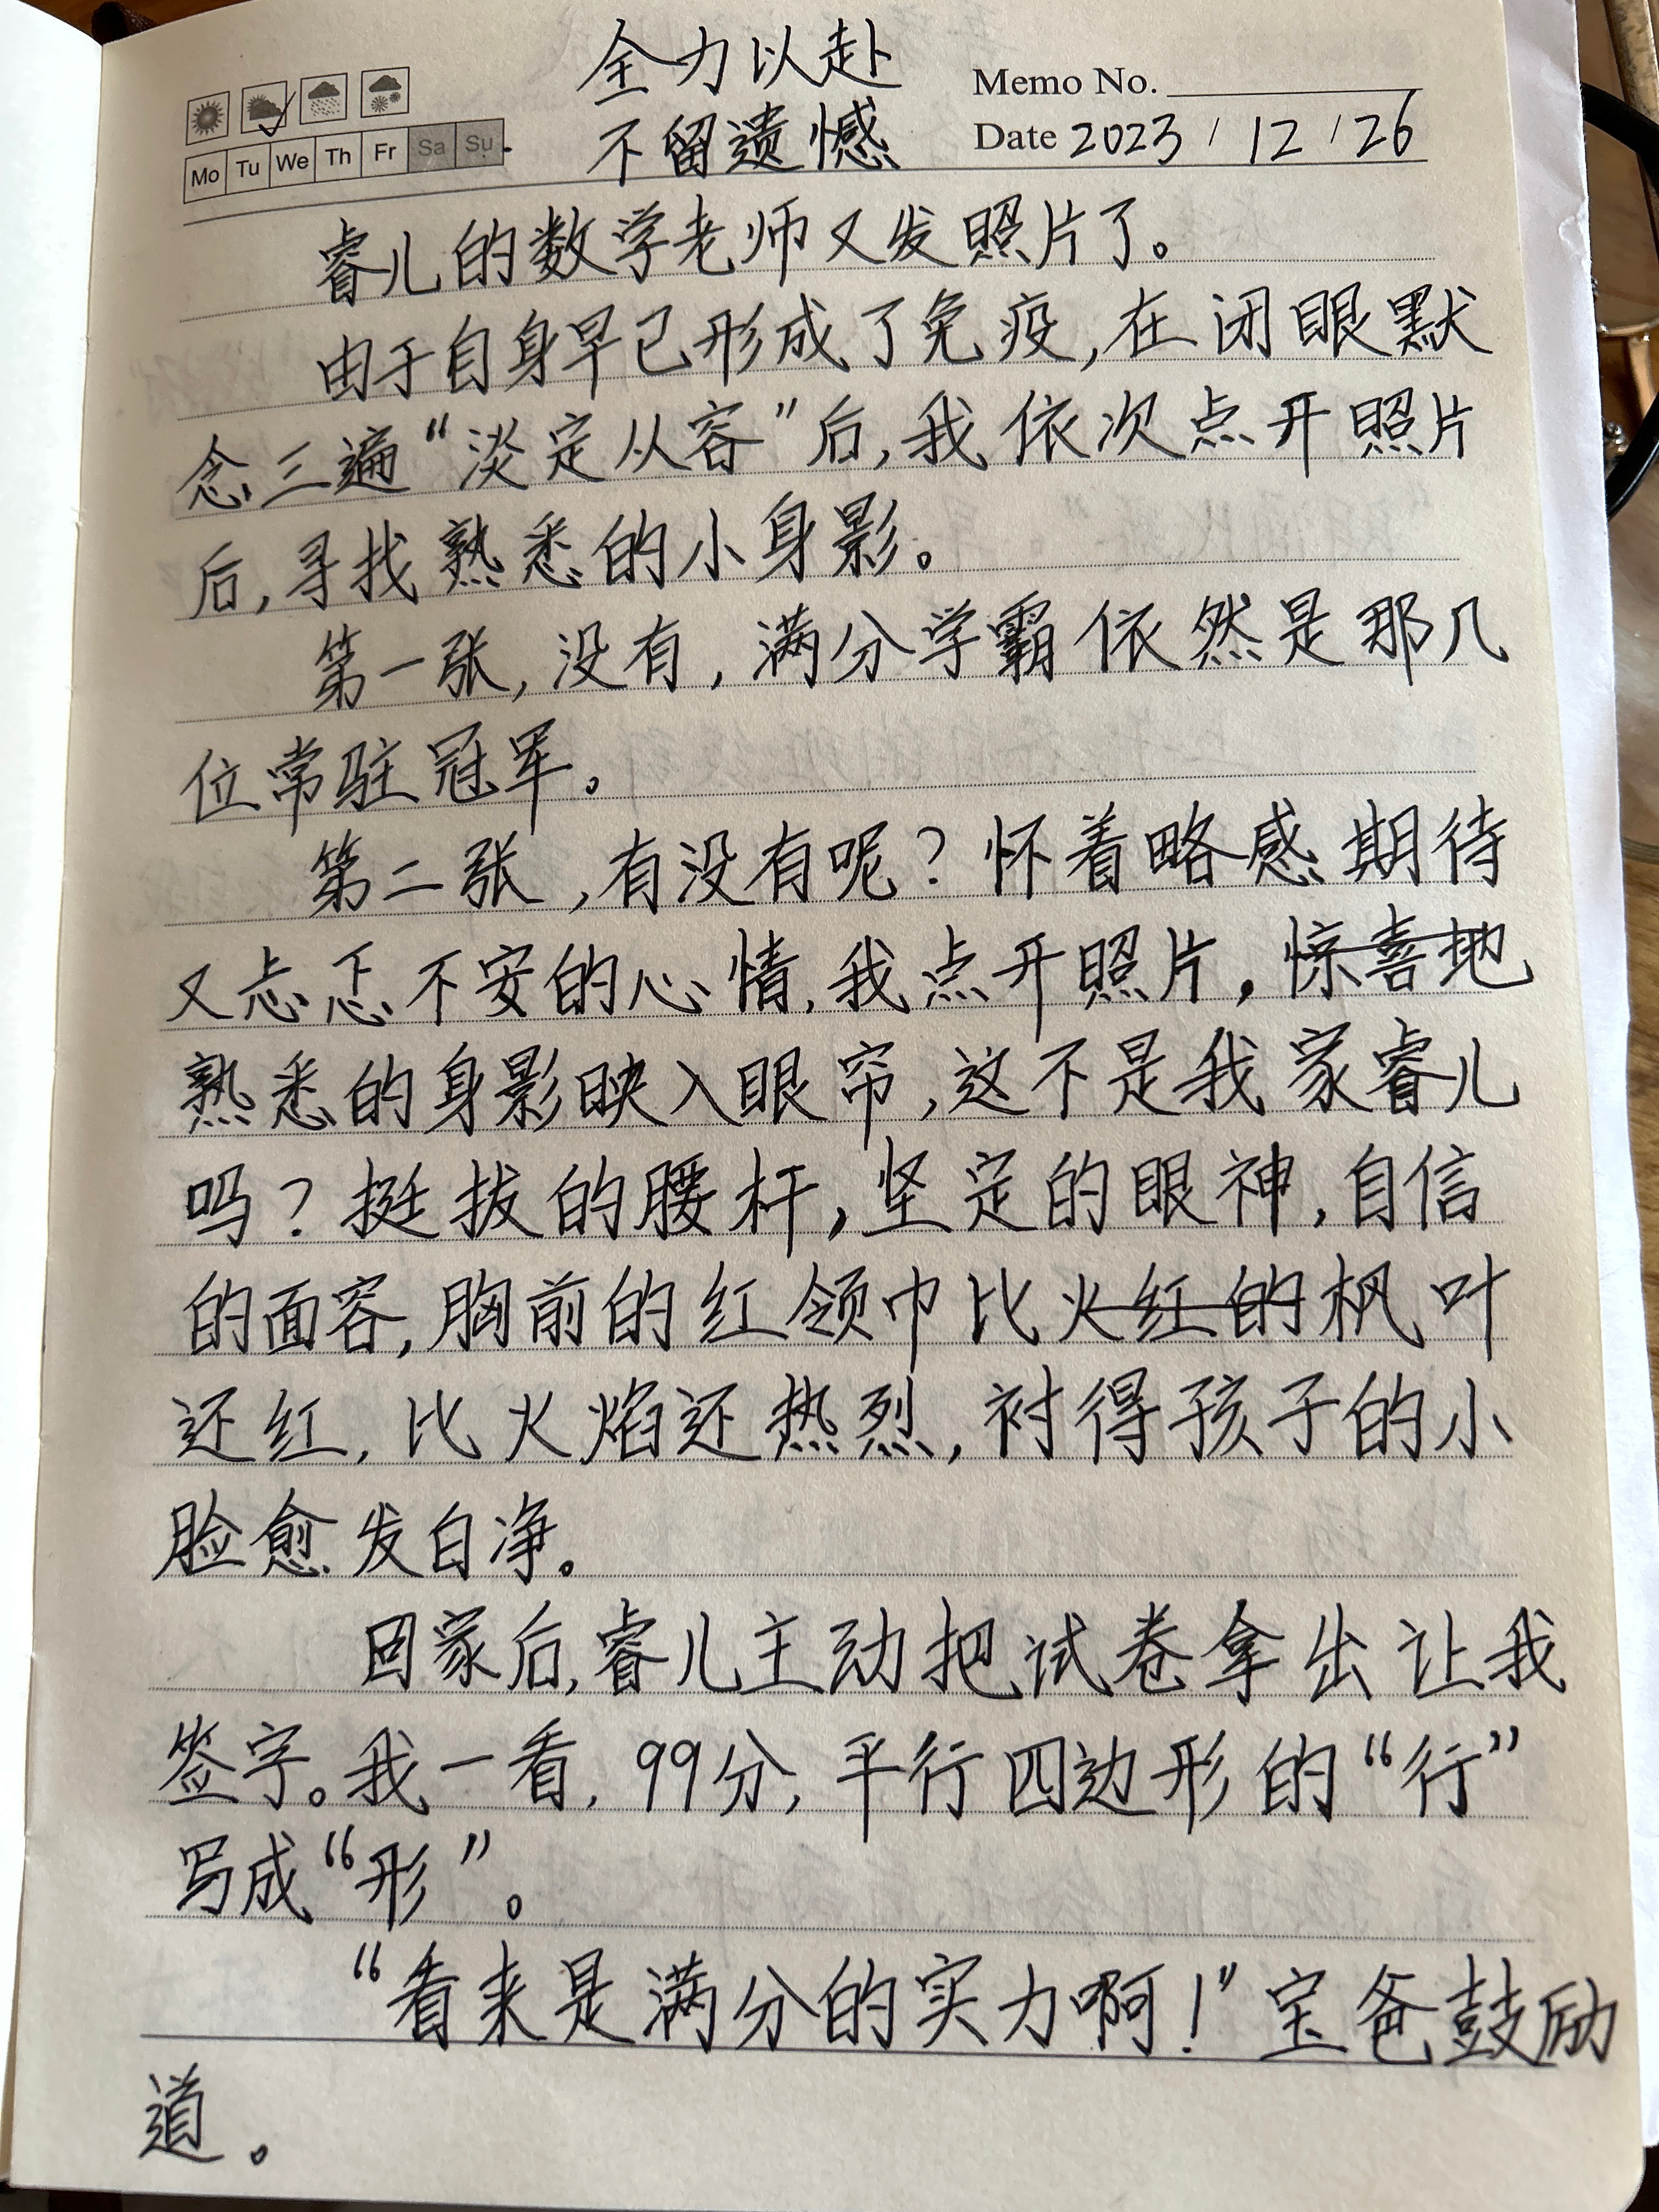 全力以赴
Memo No.
不留遗憾
Date 2023 / 12 / 26
Mo Tu We Th Fr Sa Su
睿儿的数学老师又发照片了。
由于自身早已形成了免疫,在闭眼默
念三遍“淡定从容”后,我依次点开照片
后,寻找熟悉的小身影。
第一张,没有,满分学霸依然是那几
位常驻冠军。
第二张,有没有呢?怀着略感期待
又忐忑不安的心情,我点开照片,惊喜地
熟悉的身影映入眼帘,这不是我家睿儿
吗?挺拔的腰杆,坚定的眼神,自信
的面容,胸前的红领巾比火红的枫叶
还红,比火焰还热烈,衬得孩子的小
脸愈发白净。
回家后,睿儿主动把试卷拿出让我
签字。我一看,99分,平行四边形的“行”
写成“形”。
“看来是满分的实力啊!”宝爸鼓励
道。